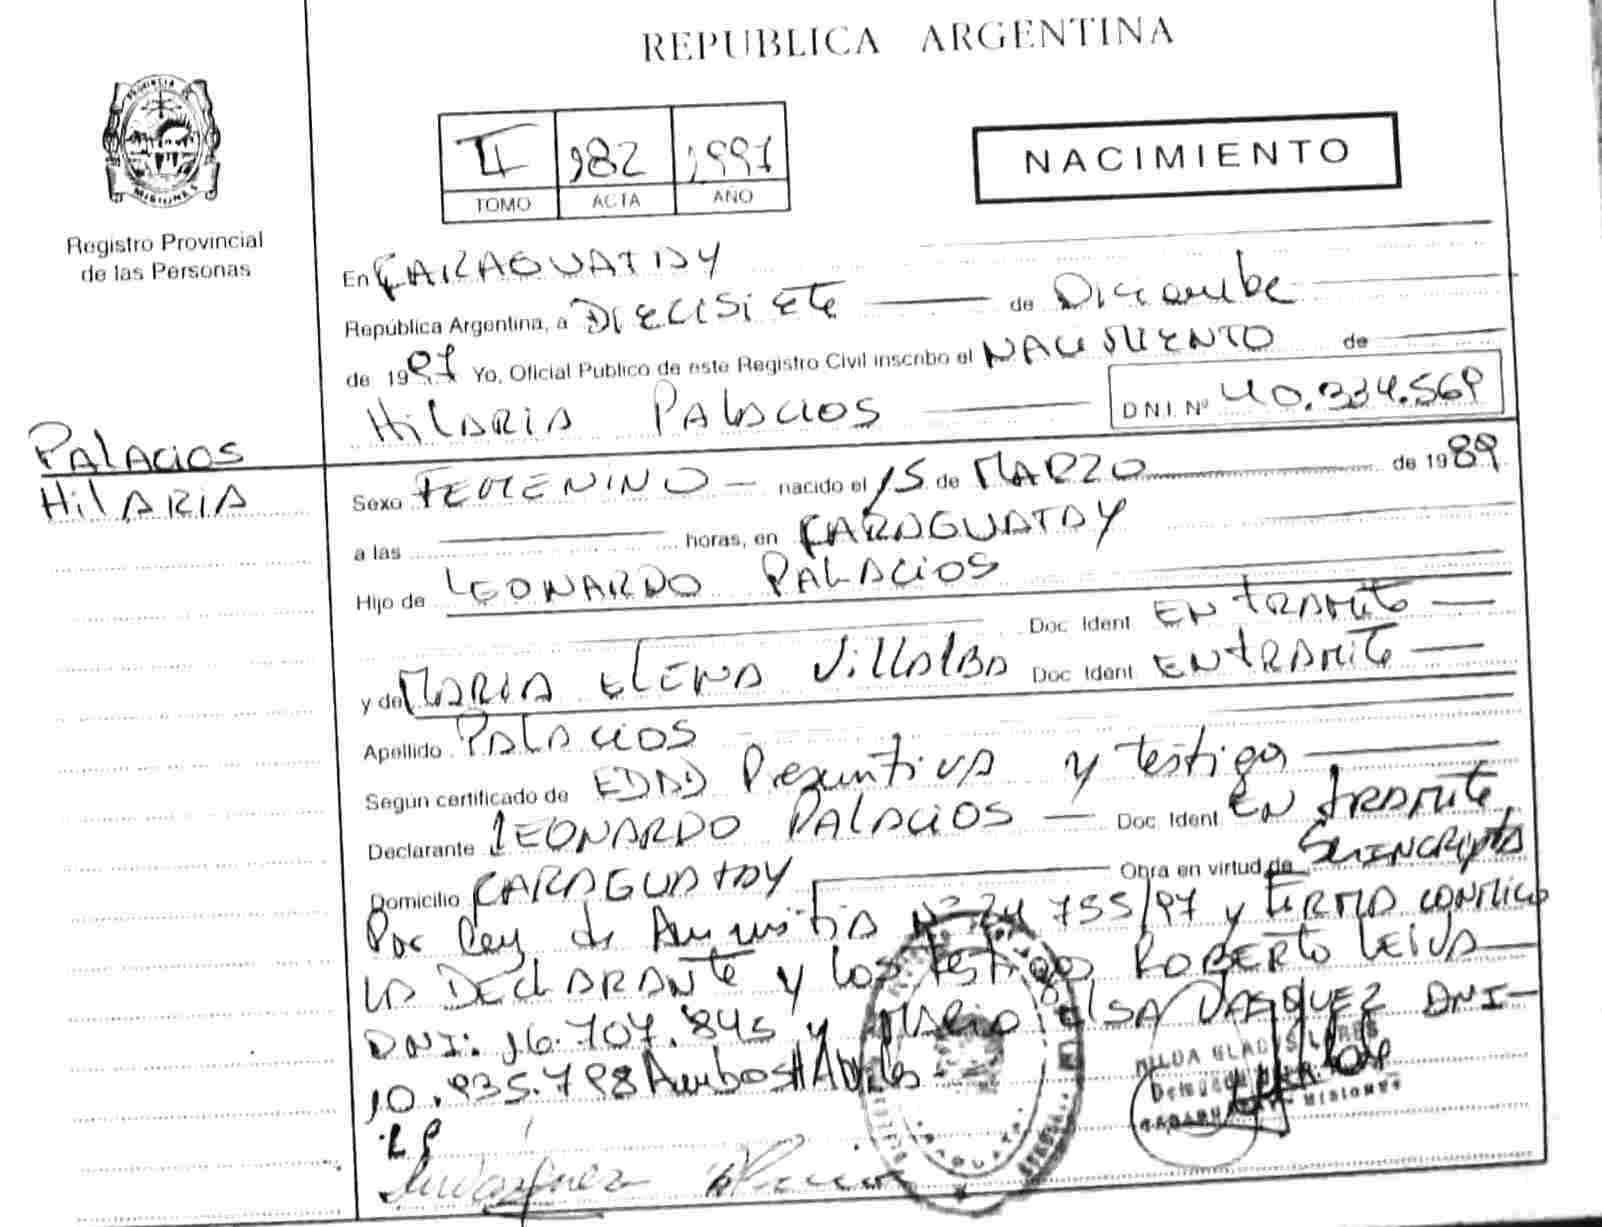 REPUBLICA ARGENTINA
PROVINCIA DE
MISIONES
Registro Provincial
de las Personas
II 182 1997
TOMO ACTA AÑO
NACIMIENTO
En CARAGUATAY
República Argentina, a DIECISIETE de Diciembre
de 1997 Yo, Oficial Público de este Registro Civil inscribo el NACIMIENTO de
HilARIA PALACIOS D.N.I. Nº 40.334.569
PALACIOS
HilARIA
Sexo FEMENINO nacido el 15 de MARZO de 1989
a las horas, en CARAGUATAY
Hijo de LEONARDO PALACIOS
Doc Ident EN TRAMITE
y de MARIA ELENA VillALBA Doc Ident EN TRAMITE
Apellido PALACIOS
Segun certificado de EDAD Presuntiva y testigo
Declarante LEONARDO PALACIOS Doc Ident EN TRAMITE
Domicilio CARAGUATAY Obra en virtud de SE INCRIPTA
Por Ley de Amnistia Nº 24 755/97 y FIRMA CONMIGO
LA DECLARANTE y los testigos ROBERTO LEIVA
DNI: 16.707.845 y MARIA ELSA VASQUEZ DNI
10.935.798 Ambos HABILES
HILDA GLADYS
MISIONES